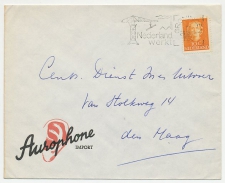 Nederland
werkt
Centr. Dienst In en Uitvoer
van Stolkweg 14
den Haag
Aurophone
IMPORT